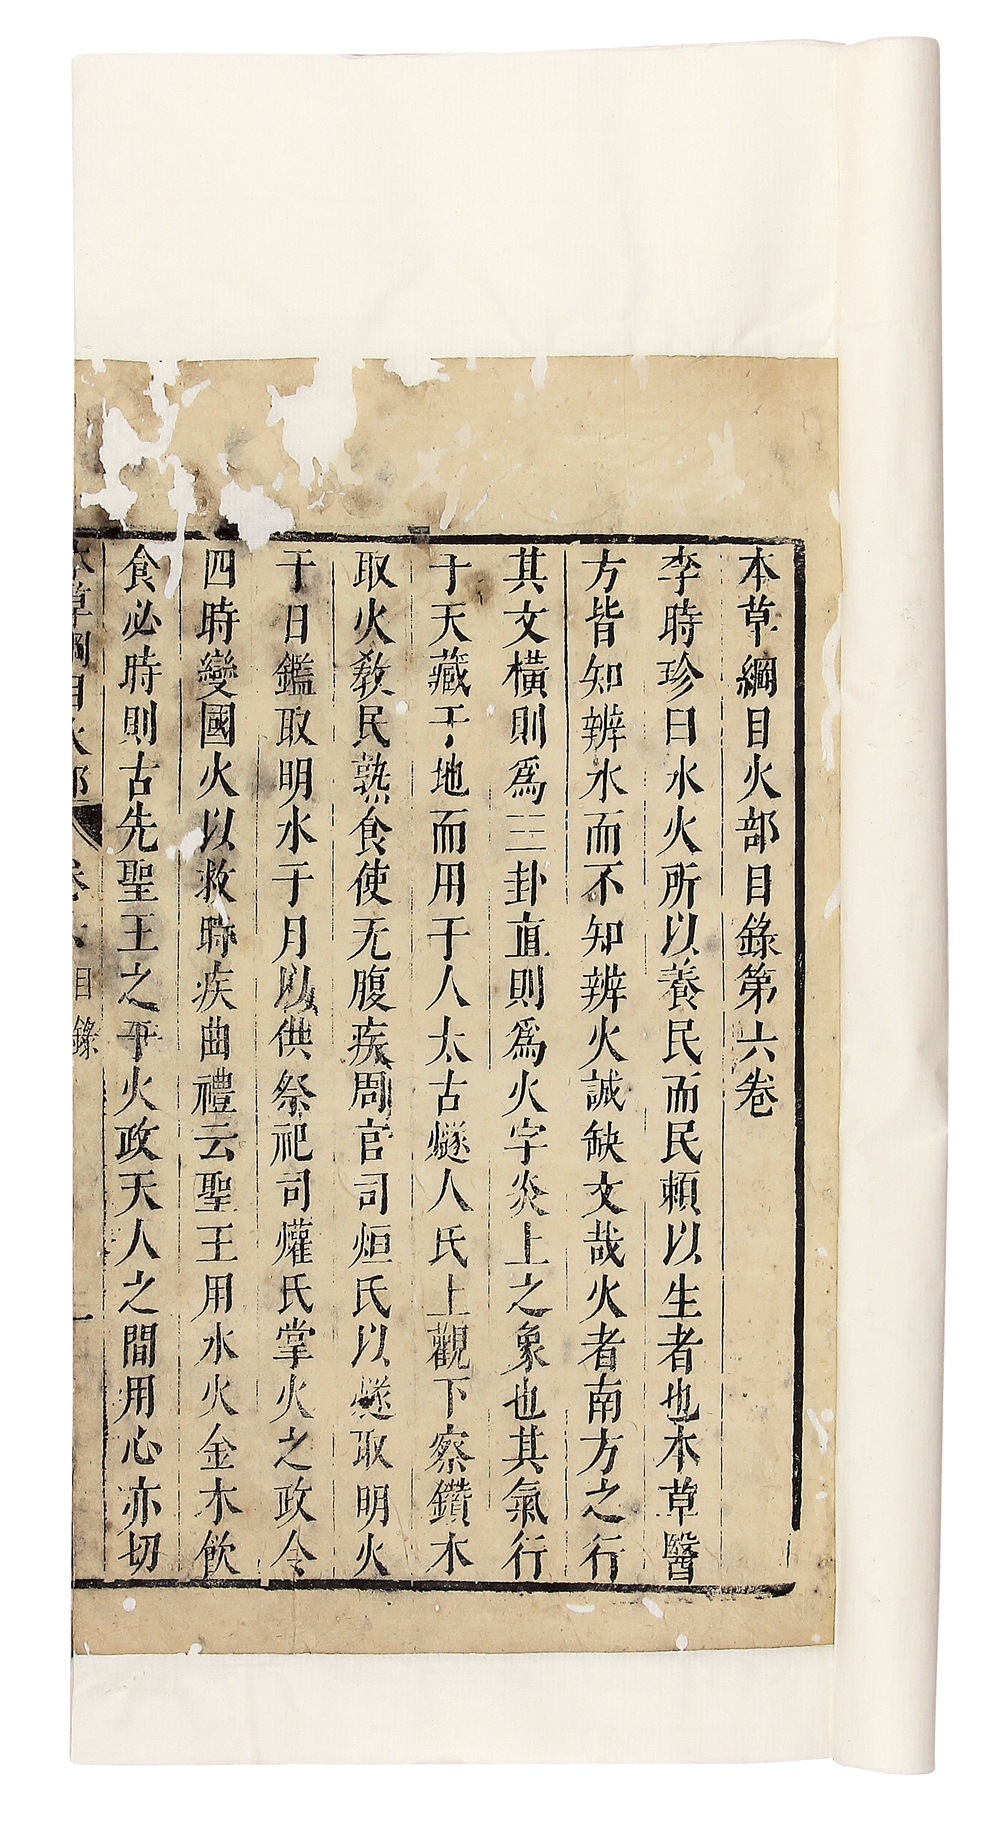 本草綱目火部目錄第六卷
李時珍曰水火所以養民而民賴以生者也本草醫
方皆知辨水而不知辨火誠缺文哉火者南方之行
其文橫則爲三卦直則爲火字炎上之象也其氣行
于天藏于地而用于人太古燧人氏上觀下察鑽木
取火教民熟食使无腹疾周官司烜氏以燧取明火
于日鑑取明水于月以供祭祀司爟氏掌火之政令
四時變國火以救時疾曲禮云聖王用水火金木飲
食必時則古先聖王之于火政天人之間用心亦切
本草綱目火部 卷六 目錄 一